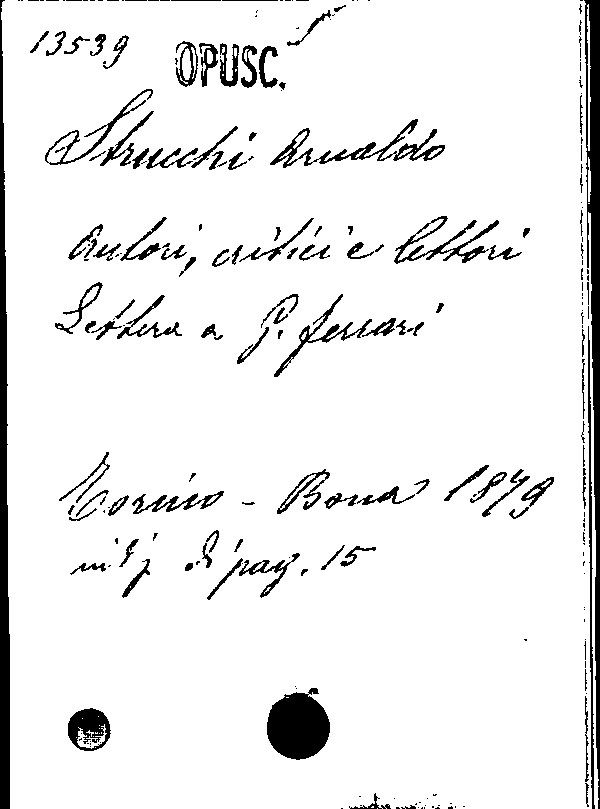 13539
OPUSC.
Strucchi Arnaldo
Autori, critici e lettori
Lettera a G. Ferrari
Torino - Bona 1879
in 8° di pag. 15